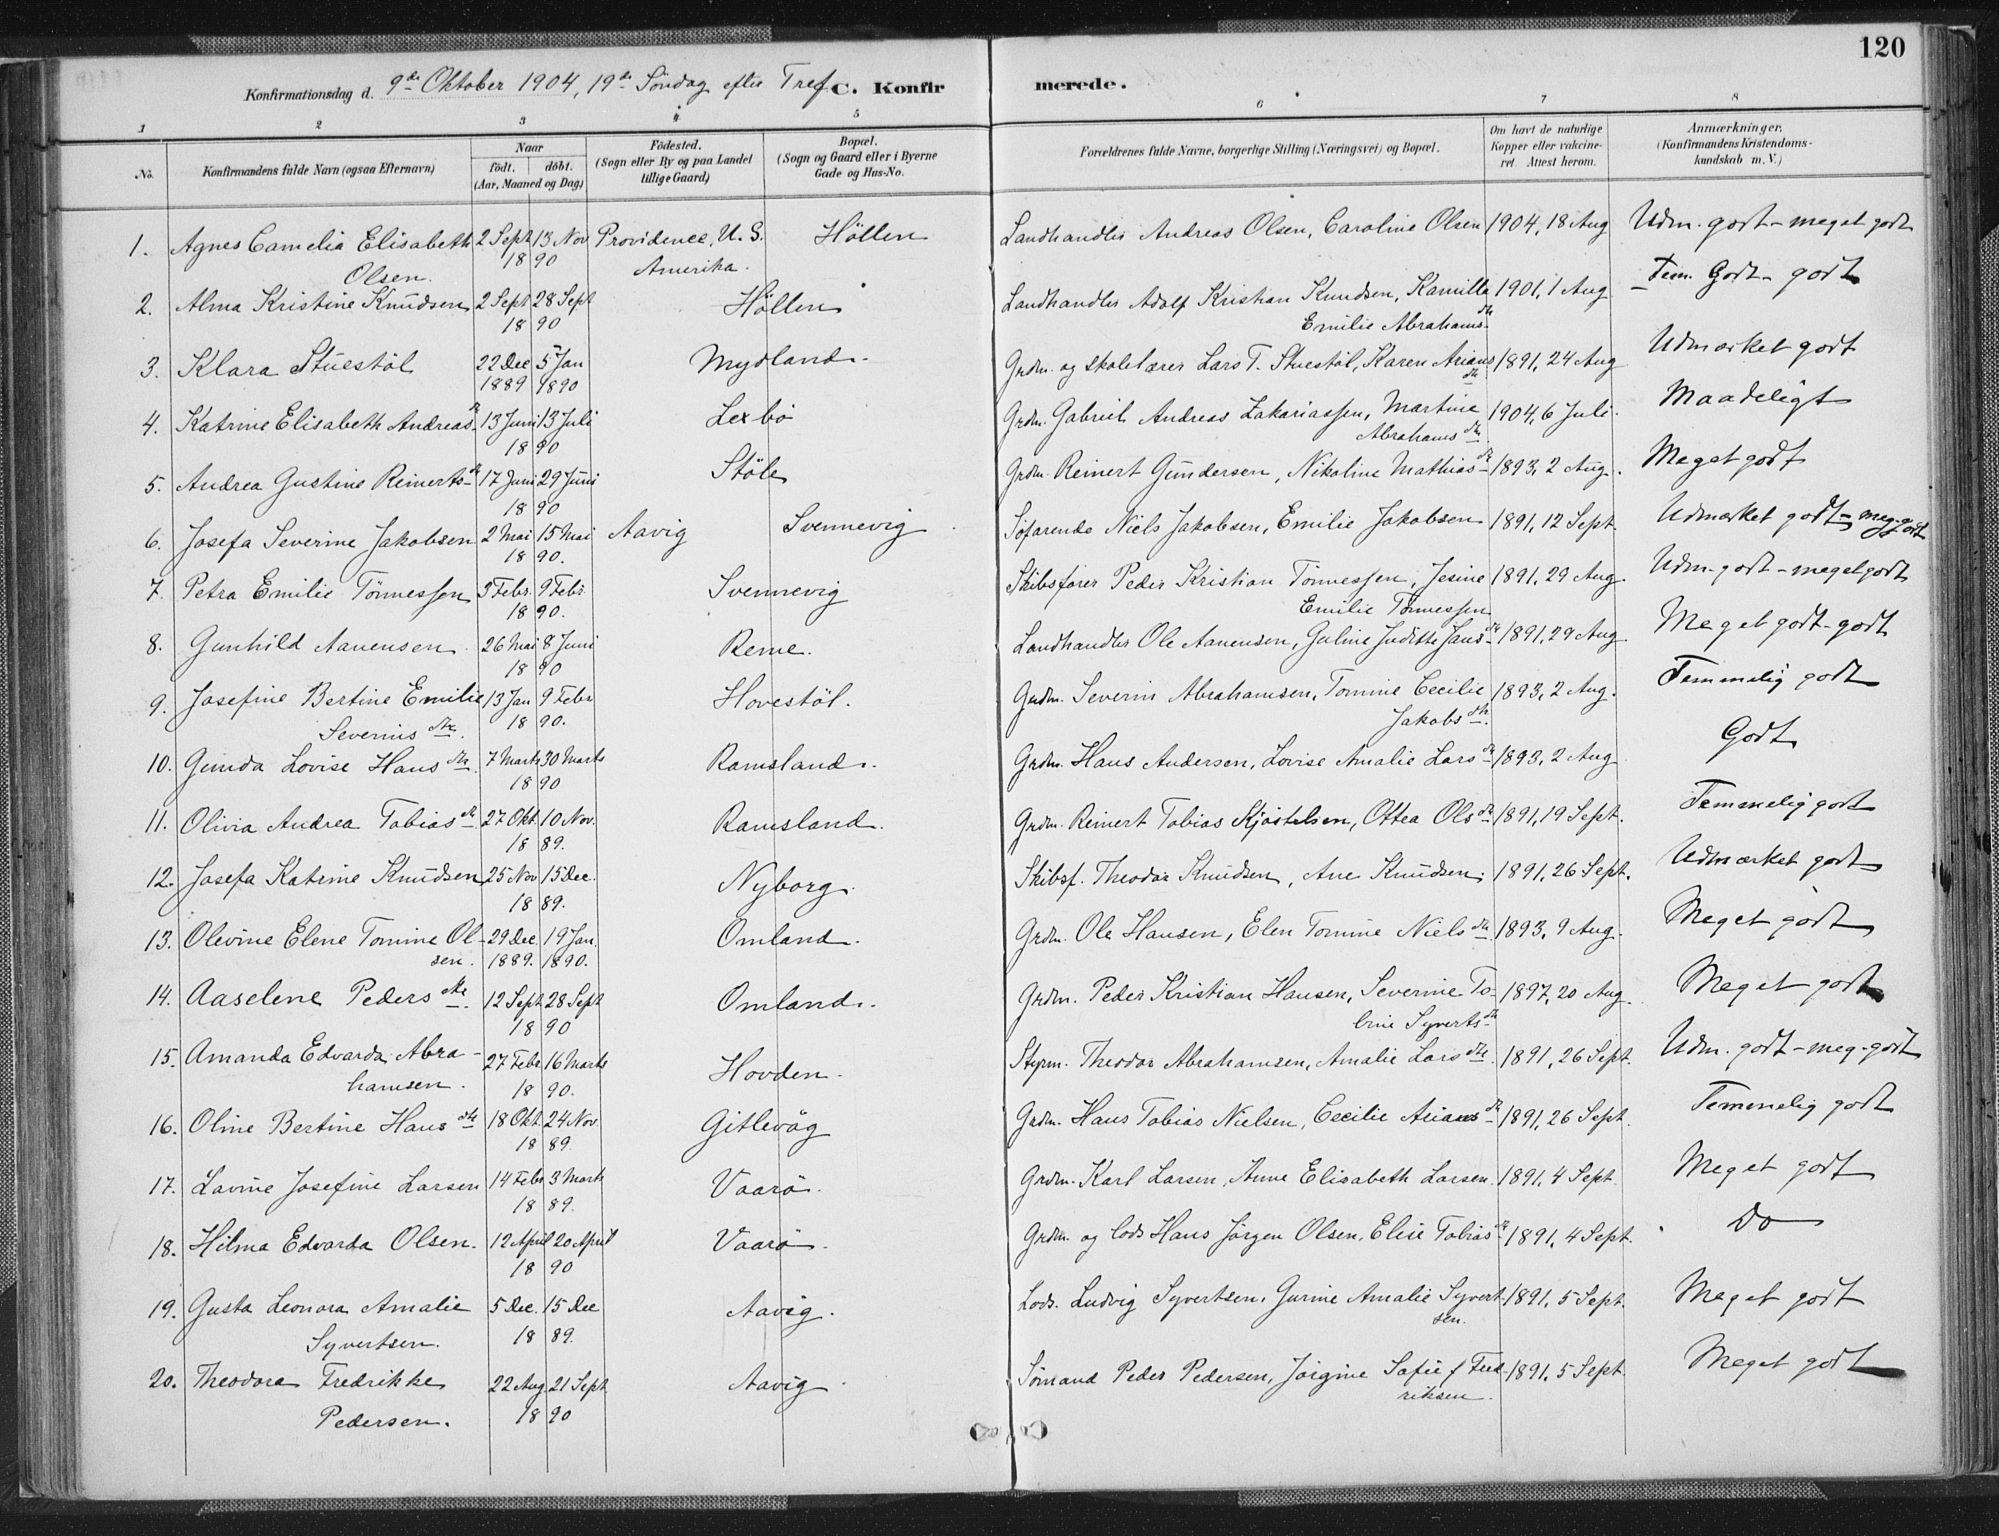 120
Konfirmationsdag d. 9de Oktober 1904, 19de Söndag efter Tref. C. Konfirmerede.
1 2 3 4 5 6 7 8
No. Konfirmandens fulde Navn (ogsaa Efternavn) Naar födt. döbt. (Aar, Maaned og Dag) Födested. (Sogn eller By og paa Landet tillige Gaard) Bopæl. (Sogn og Gaard eller i Byerne Gade og Hus-No. Forældrenes fulde Navne, borgerlige Stilling (Næringsvei) og Bopæl. Om havt de naturlige Kopper eller vakcineret. Attest herom. Anmærkninger. (Konfirmandens Kristendomskundskab m. V.)
1. Agnes Camelia Elisabeth 2 Sept 13 Nov Providence, U. S. Höllen Landhandler Andreas Olsen, Caroline Olsen 1904, 18 Aug Udm. godt - meget godt
Olsen. 18 90 Amerika.
2. Alma Kristine Knudsen 2 Sept 28 Sept Höllen Landhandler Adolf Kristian Knudsen, Kamilla 1901, 1 Aug Tem. Godt - godt
18 90 Emilie Abrahamsdtr
3. Klara Stuestöl 22 Dec 5 Jan Mydland. Grdm. og skolelærer Lars T. Stuestöl, Karen Ariansdtr 1891, 24 Aug Udmærket godt
1889 1890
4. Katrine Elisabeth Andreasdr 13 Juni 13 Juli Lexbö Grdm. Gabriel Andreas Zakariassen, Martine 1904, 6 Juli. Maadeligt
18 90 Abrahamsdtr.
5. Andrea Gustine Reinertsdr 17 Juni 29 Juni Støle Grdm. Reinert Gundersen, Nikoline Mathiasdr 1893, 2 Aug. Meget godt
18 90
6. Josefa Severine Jakobsen 2 Mai 15 Mai Aavig Svennevig Søfarende Niels Jakobsen, Emilie Jakobsen 1891, 12 Sept. Udmærket godt - meg. godt
18 90.
7. Petra Emilie Tönnessen 3 Febr. 9 Febr. Svennevig Skibsförer Peder Kristian Tönnessen, Jesine 1891, 29 Aug. Udm. godt - meget godt
18 90. Emilie Tönnessen
8. Gunhild Aanensen 26 Mai 8 Juni Reme. Landhandler Ole Aanensen, Guline Judithe Jansdtr 1891, 29 Aug Meget godt - godt
18 90
9. Josefine Bertine Emilie 13 Jan 9 Febr Hovestöl. Grdm. Severin Abrahamsen, Tomine Cecilie 1893, 2 Aug. Temmelig godt
Severinsdtr. 18 90. Jakobsdtr.
10. Gunda Lovise Hansdtr. 7 Marts 30 Marts Ramsland. Grdm. Hans Andersen, Lovise Amalie Larsdr 1893, 2 Aug Godt
18 90
11. Olivia Andrea Tobiasdtr 27 Okt. 10 Nov. Ramsland. Grdm. Reinert Tobias Kjöstelsen, Ottea Olsdtr 1891, 19 Sept. Temmelig godt
18 89.
12. Josefa Katrine Knudsen 25 Nov 15 Dec. Nyborg. Skibsf. Theodor Knudsen, Ane Knudsen. 1891, 26 Sept. Udmærket godt
18 89.
13. Olevine Elene Tomine Ol- 29 Dec. 19 Jan. Omland. Grdm. Ole Hansen, Elen Tomine Nielsdtr 1893, 9 Aug. Meget godt
sen. 1889. 1890.
14. Aaselene Pedersdtr. 12 Sept 28 Sept Omland. Grdm. Peder Kristian Hansen, Severine To- 1897, 20 Aug. Meget godt
18 90 bine Syvertsdr
15. Amanda Edvarda Abra- 27 Febr. 16 Marts Hovden. Styrm. Theodor Abrahamsen, Amalie Larsdtr 1891, 26 Sept. Udm. godt - meg. godt
hamsen. 18 90.
16. Oline Bertine Hansdtr 18 Okt. 24 Nov. Gitlevåg Grdm. Hans Tobias Nielsen, Cecilie Ariansdr 1891, 26 Sept. Temmelig godt
18 89
17. Lavine Josefine Larsen 14 Febr 3 Marts Vaarö. Grdm. Karl Larsen, Anne Elisabeth Larsen. 1891, 4 Sept. Meget godt
18 89.
18. Hilma Edvarda Olsen. 12 April 20 April Vaarö. Grdm. og lods Hans Jörgen Olsen, Elise Tobiasdr 1891, 4 Sept. Do
18 90
19. Gusta Leonora Amalie 5 Dec. 15 Dec Aavig. Lods. Ludvig Syvertsen, Gurine Amalie Syvert- 1891, 5 Sept. Meget godt
Syvertsen. 18 89. sen.
20. Theodora Fredrikke 22 Aug 21 Sept Aavig Sømand Peder Pedersen, Jörgine Sofie f Fred- 1891, 5 Sept. Meget godt
Pedersen. 18 90 riksen.